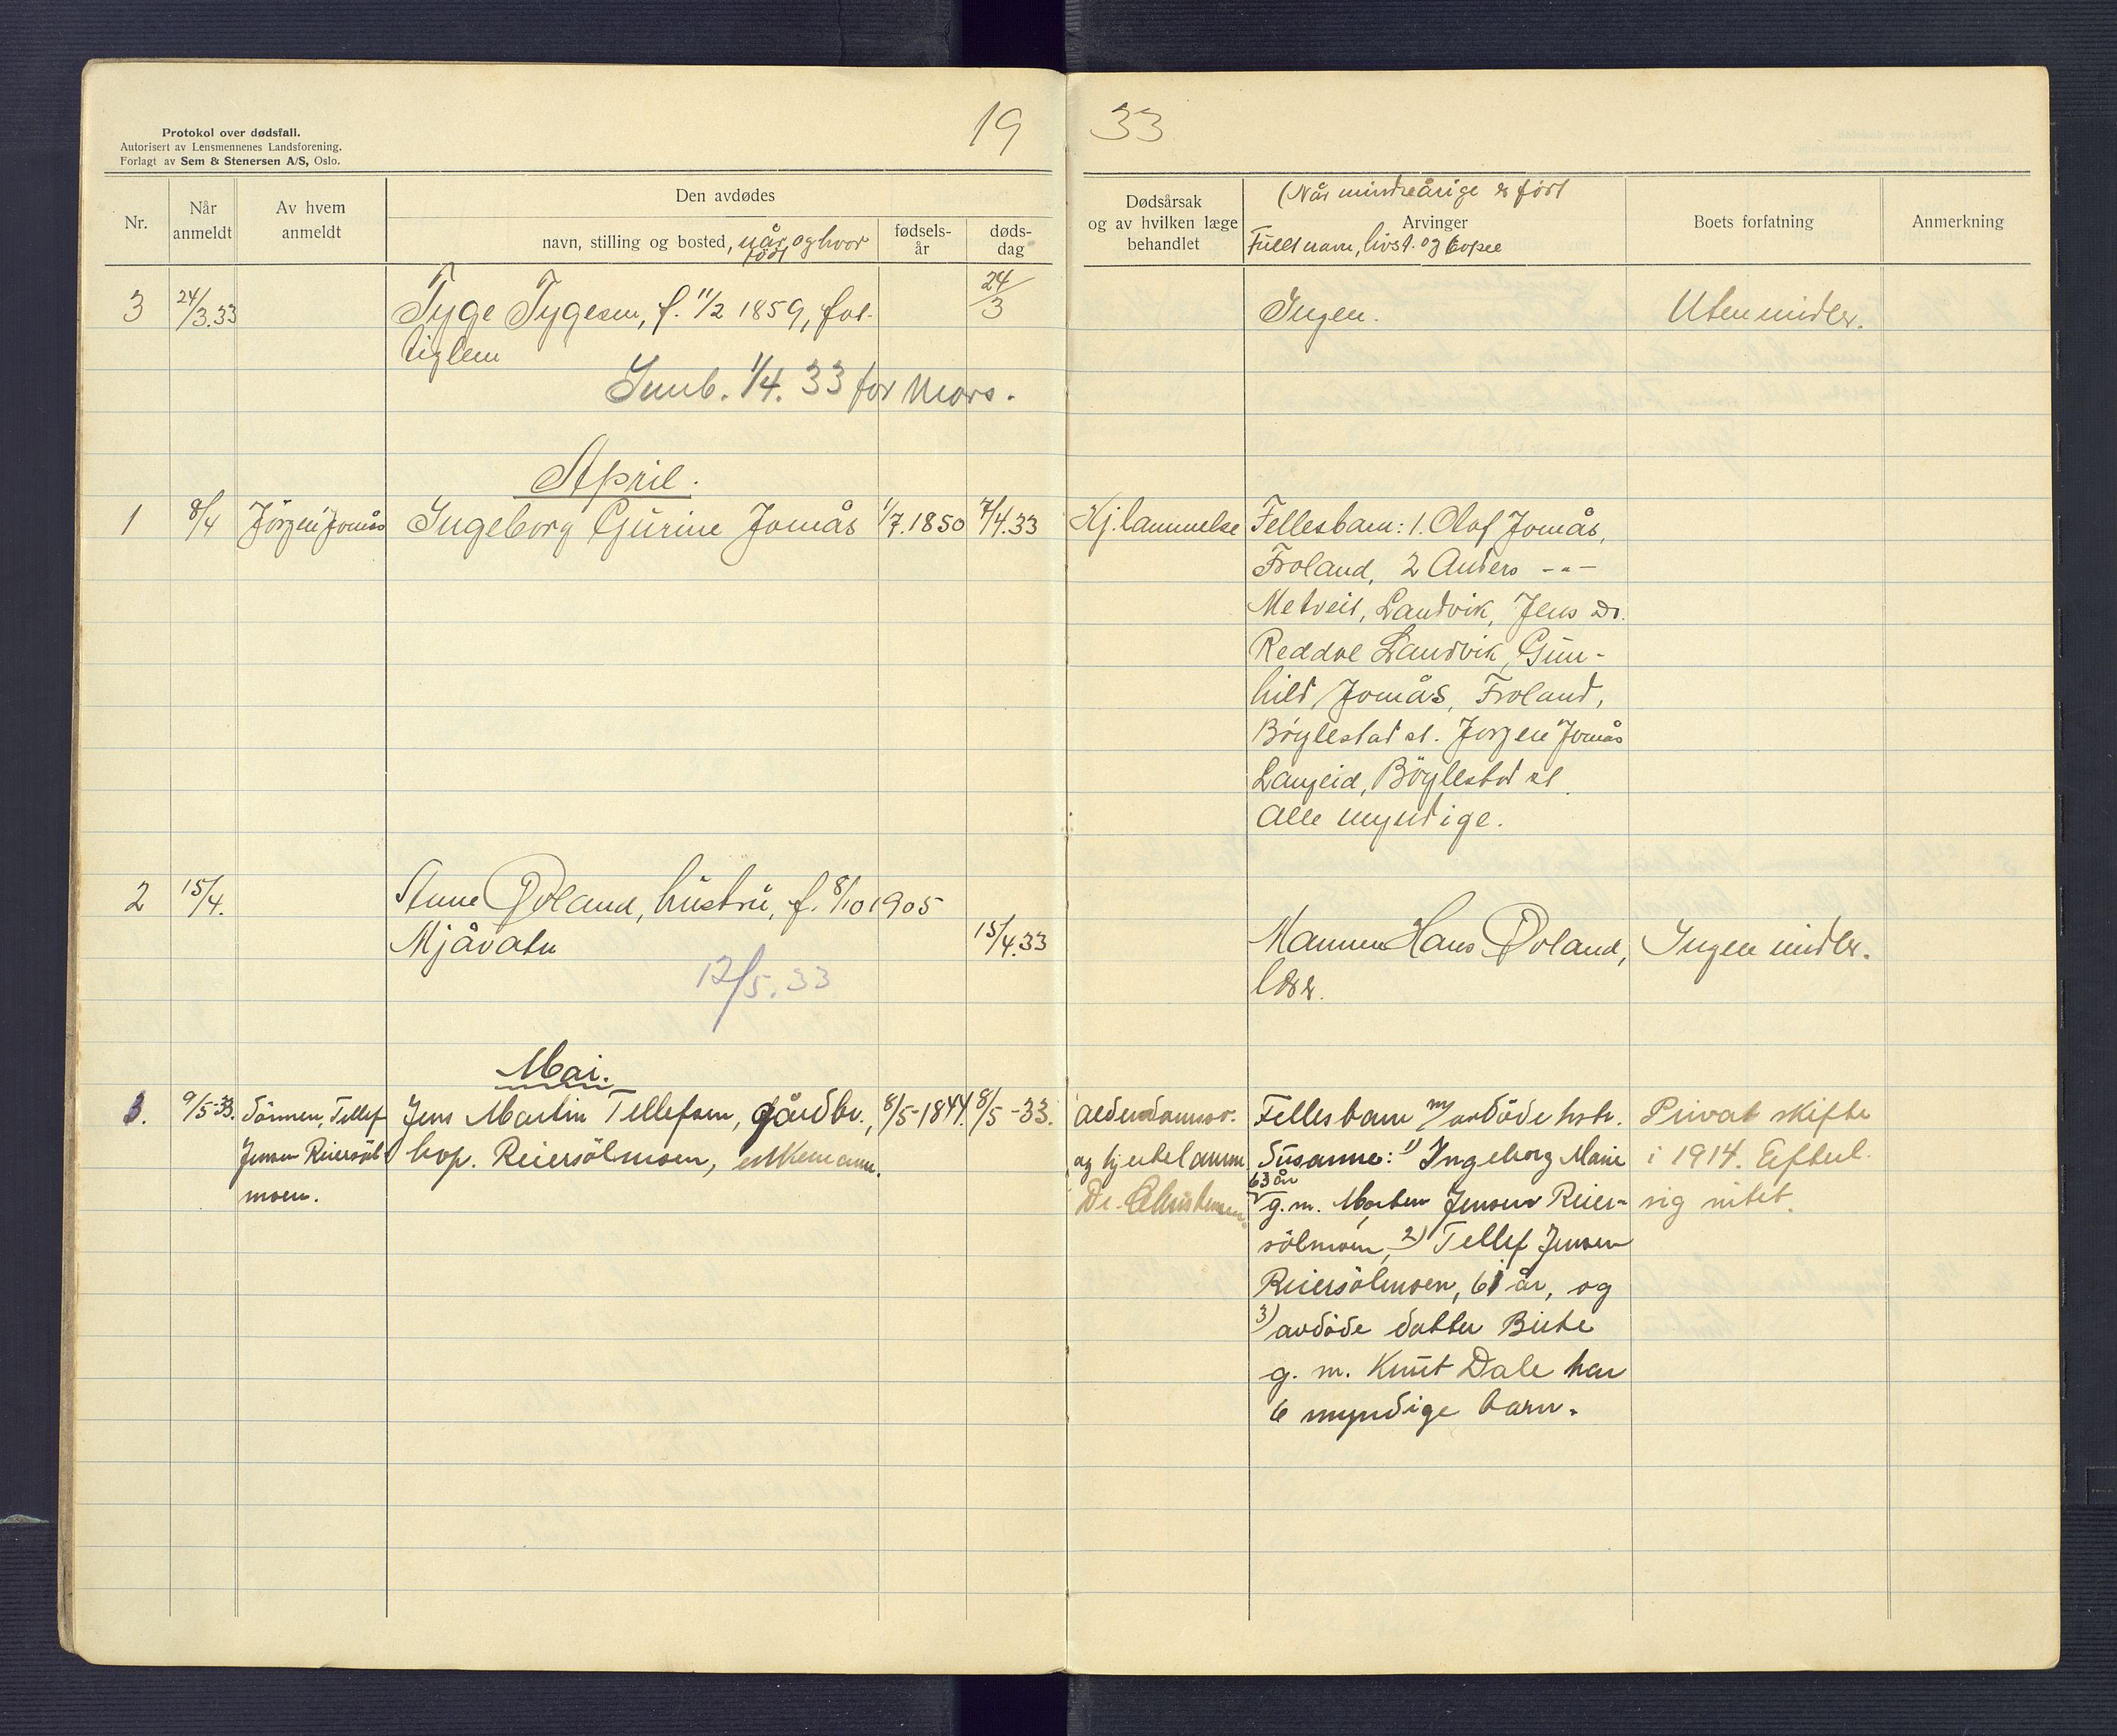 Protokol over dødsfall.
Autorisert av Lensmennenes Landsforening.
Forlagt av Sem & Stenersen A/S, Oslo.
19
33
Nr.
Når
anmeldt
Av hvem
anmeldt
Den avdødes
navn, stilling og bosted, når og hvor
født
fødsels-
år
døds-
dag
Dødsårsak
og av hvilken læge
behandlet
(Når mindreårige er født
Arvinger
Fullt navn, livsst. og bopel
Boets forfatning
Anmerkning
3 24/3.33 Tyge Tygesen, f. 11/2 1859, fat- 24/3 Ingen. Uten midler.
tiglem
Innb. 1/4. 33 for Mars.
April.
1 8/4 Jörgen Jomås Ingeborg Gurine Jomås 1/7.1850 7/4.33 Hj.lammelse Fellesbarn: 1. Olaf Jomås,
Froland, 2 Anders -"-
Metveit, Landvik, Jens Do.
Reddal Landvik, Gun-
hild Jomås, Froland,
Bøylestad st. Jørgen Jomås
Langeid, Böylestad st.
Alle myndige.
2 15/4. Anne Øvland, hustru, f. 8/10 1905
Mjåvatn 15/4.33 Mannen Hans Øvland, Ingen midler.
12/5.33
Mai.
1. 9/5-33. Sönnen, Tellef Jens Martin Tellefsen, gårdbr., 8/5-1844. 8/5-33. Alderdomssv. Fellesbarn m/avdöde hstr. Privat skifte
Jensen Reiersöl- bop. Reiersölmoen, enkemann. og hjertelamm. Susanne: 1) Ingeborg Marie i 1914. Efterl.
63 år
moen. Dr. Christensen. g. m. Morten Jensen Reier- sig intet.
sölmoen, 2) Tellef Jensen
Reiersölmoen, 61 år, og
3) avdöde datter Birte
g. m. Knut Dale har
6 myndige barn.